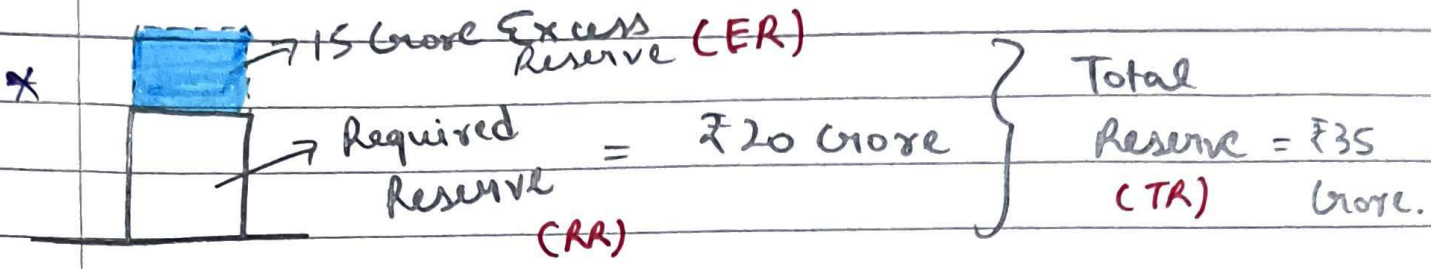 15 Crore Excess Reserve (ER)
* Required Reserve = ₹20 Crore
(RR)
Total
Reserve = ₹35
(TR) Crore.